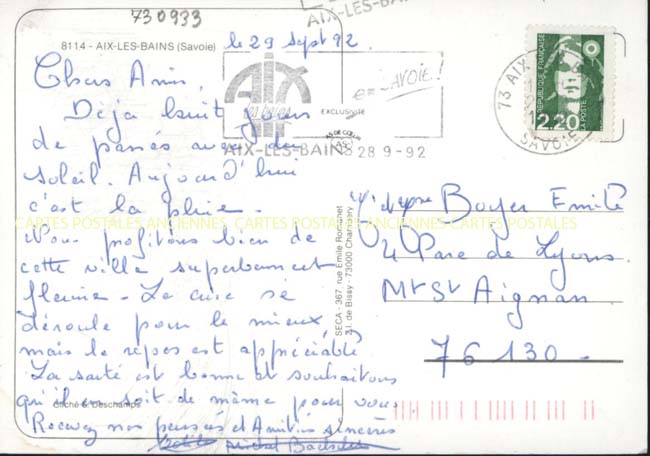 730933
AIX-LES-BAINS
8114 - AIX-LES-BAINS (Savoie)
le 29 Sept 92.
Chers Amis,
Déja huit jours
de passés avec du
soleil. Aujourd'hui
c'est la pluie.
Nous profitons bien de
cette ville superbement
fleurie - La cure se
déroule pour le mieux,
mais le repos est appréciable
La santé est bonne et souhaitons
qu'il en soit de même pour vous
Recevez nos pensées et Amitiés sincères
Cliché G. Deschamps
AIX
en SAVOIE!
EXCLUSIVITÉ
AS DE CŒUR
AIX-LES-BAINS 28 9-92
73 AIX
SAVOIE
REPUBLIQUE FRANÇAISE
2,20
LA POSTE
SECA - 367, rue Emile Romanet
Z.I. de Bissy - 73000 Chambéry
Boyer Emile
4 Parc de Lyons
Mt St Aignan
76 130 -
CARTES POSTALES ANCIENNES CARTES POSTALES ANCIENNES CARTES POSTALES